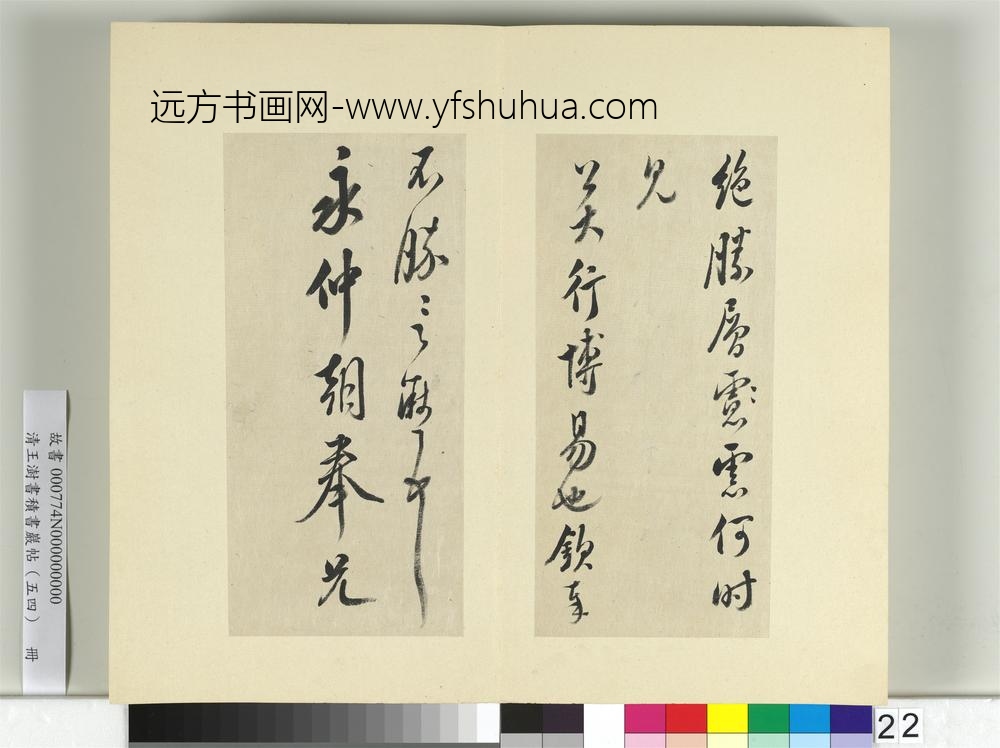 远方书画网-www.yfshuhua.com
絶勝層霄霄何时
見
公美大行博易也欽
不勝之
永仲朝奉兄
故書 000774N000000000
清王澍書積書巖帖（五四） 冊
22